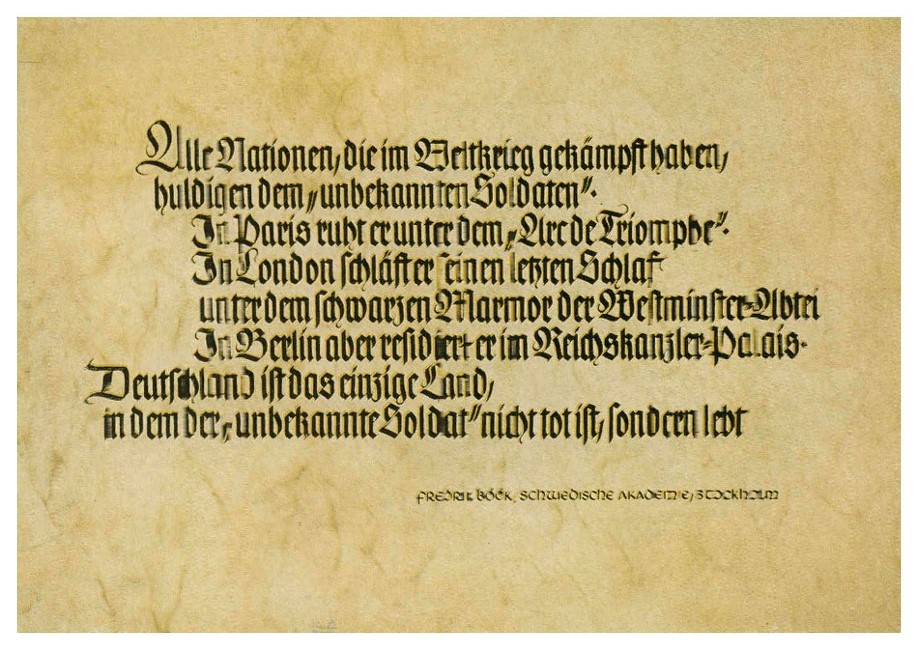 Alle Nationen, die im Weltkrieg gekämpft haben,
huldigen dem „unbekannten Soldaten“.
In Paris ruht er unter dem „Arc de Triomphe“.
In London schläft er seinen letzten Schlaf
unter dem schwarzen Marmor der Westminster-Abtei
In Berlin aber residiert er im Reichskanzler-Palais.
Deutschland ist das einzige Land,
in dem der „unbekannte Soldat“ nicht tot ist, sondern lebt
FREDRIK BÖÖK, SCHWEDISCHE AKADEMIE, STOCKHOLM